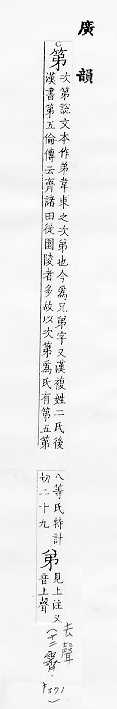 廣韻
第
次第說文本作弟韋束之次弟也今爲兄弟字又漢複姓二氏後
漢書第五倫傳云齊諸田徙園陵者多故以次第爲氏有第五第
八等氏特計
切二十九
弟
見上注又
音上聲
去聲
(十二霽)